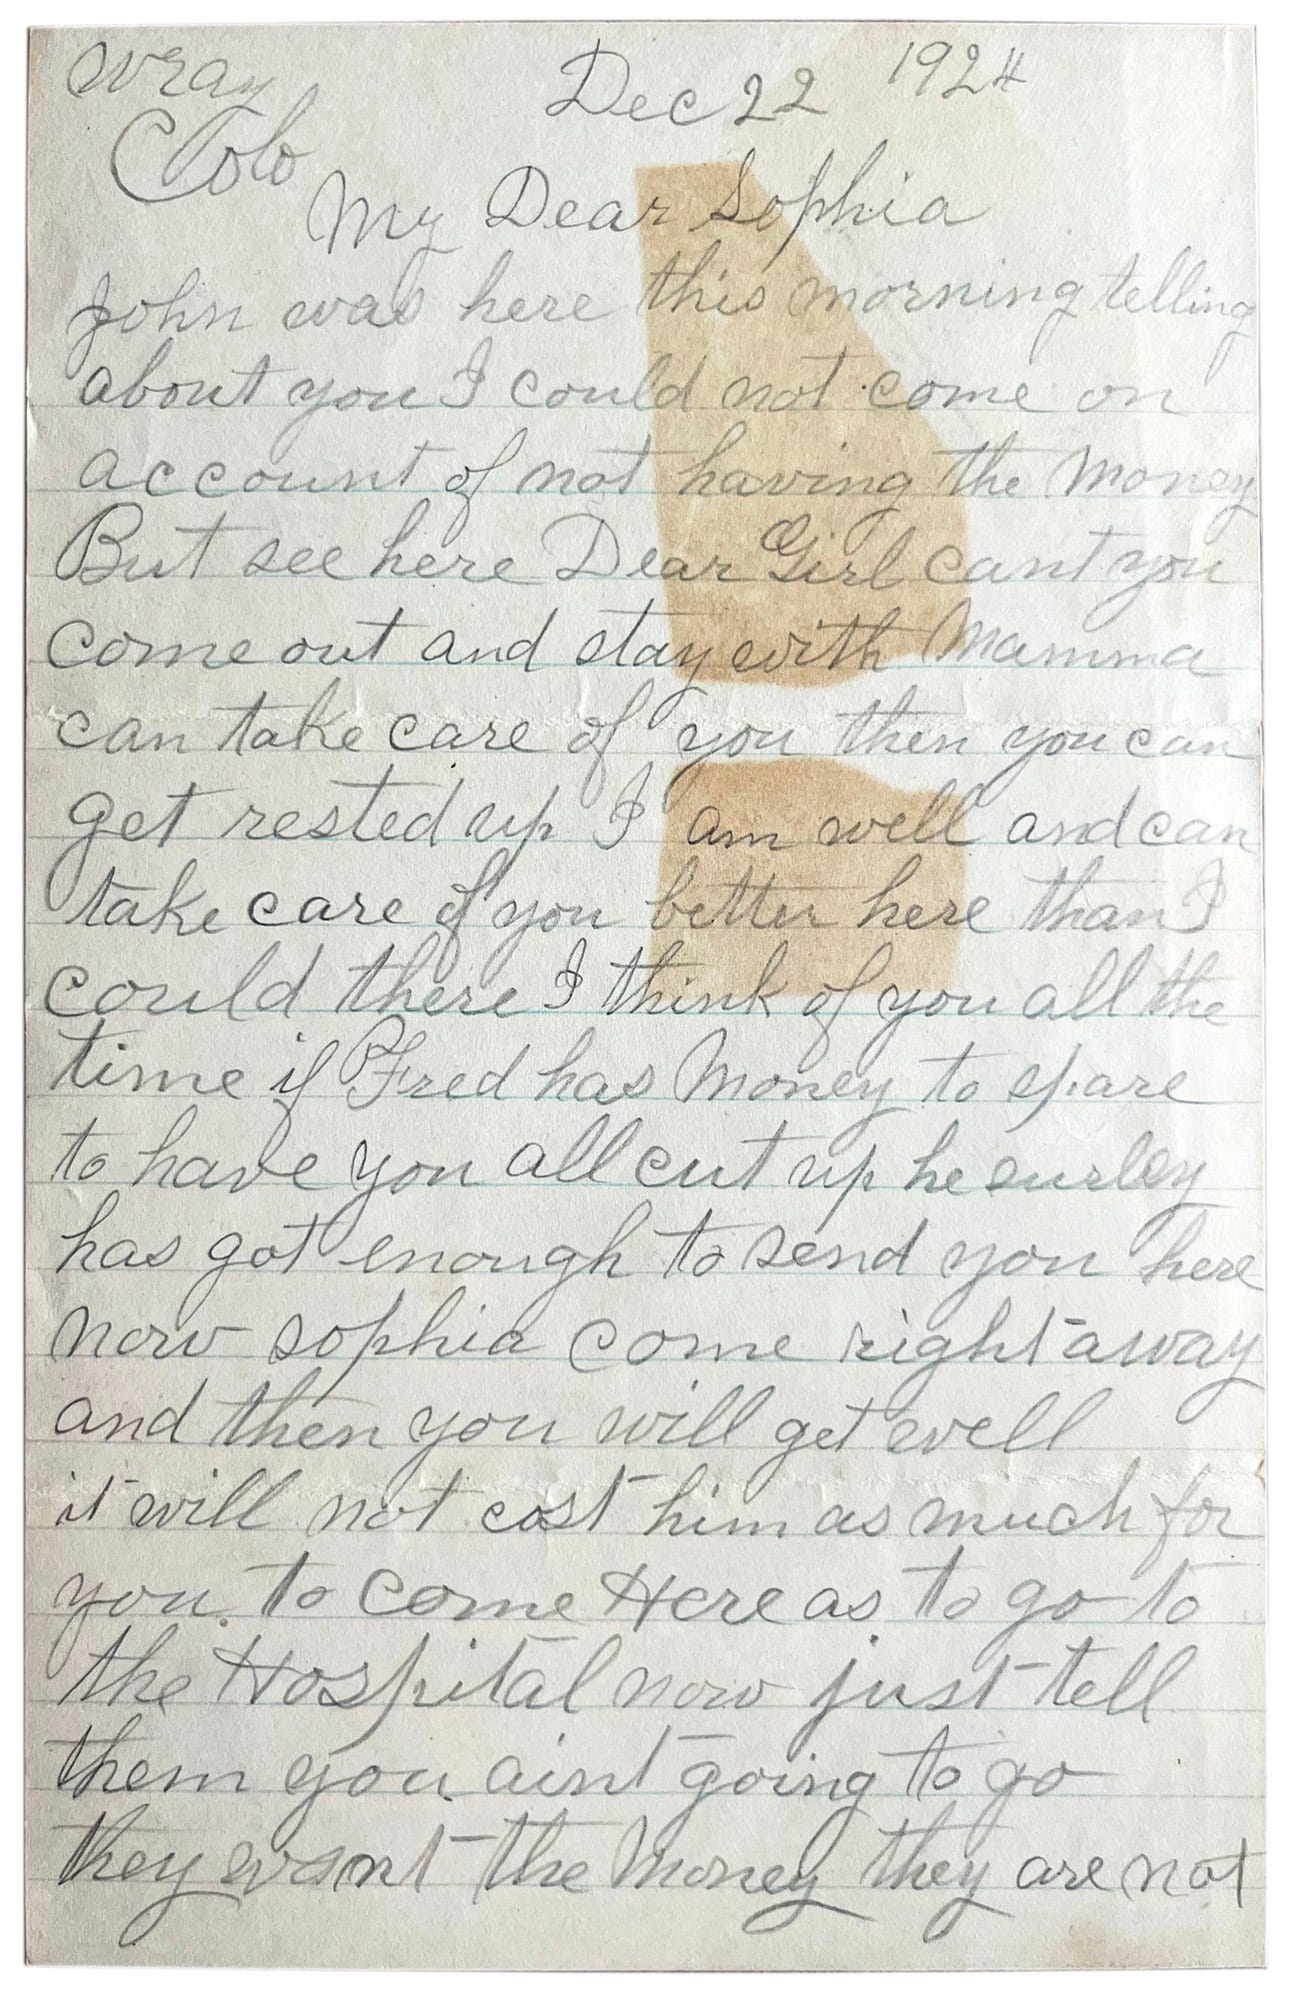 Wray Dec 22 1924
Colo
My Dear Sophia
John was here this morning telling
about you I could not come on
account of not having the Money
But see here Dear Girl cant you
come out and stay with Mamma
can take care of you then you can
get rested up I am well and can
take care of you better here than I
could there I think of you all the
time if Fred has Money to spare
to have you all cut up he surley
has got enough to send you here
now sophia come right away
and then you will get well
it will not cost him as much for
you to come Here as to go to
the Hospital now just tell
them you aint going to go
they want the Money they are not